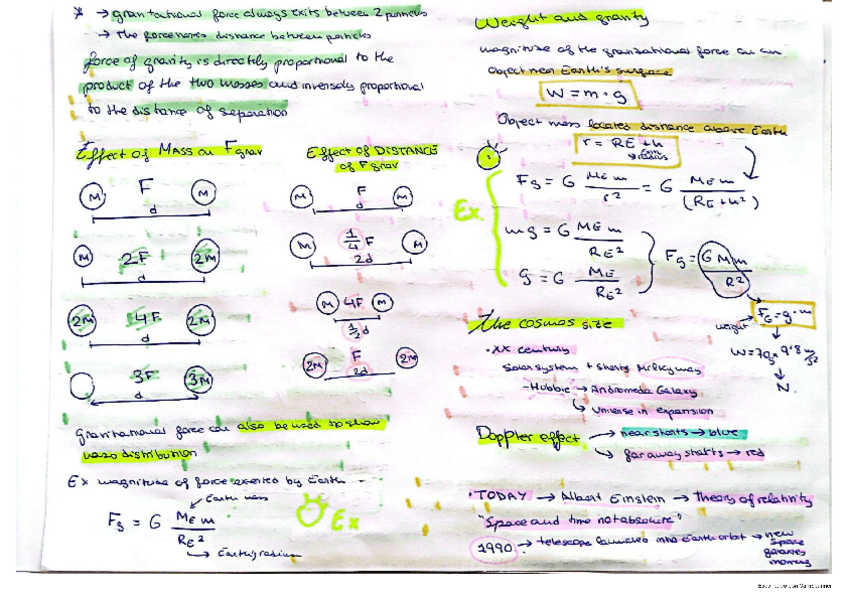 * → gravitational force always exits between 2 particles
→ the force varies distance between particles
force of gravity is directly proportional to the
product of the two masses and inversely proportional
to the distance of separation
Effect of MASS on Fgrav
M F M
d
M 2F 2M
d
2M 4F 2M
d
3F 3M
d
Effect of DISTANCE
of Fgrav
M F M
d
M 1/4 F M
2d
M 4F M
1/2 d
2M F 2M
2d
Gravitational force can also be used to show
mass distribution
Ex magnitude of force exerted by Earth
Earth mass
Fg = G ME m / RE²
Earth radius
Ex
Weight and gravity
magnitude of the gravitational force on an
object near Earth's surface
W = m · g
Object mass located distance above Earth
r = RE + h
Earth radius
Ex.
Fg = G ME m / r² = G ME m / (RE + h²)
mg = G ME m / RE²
g = G ME / RE²
Fg = G M m / R²
weight
FG = g · m
W = 70 · 9'8 m/s²
N
The cosmos size
· XX century
Solar system + stars Milky way
- Hubble → Andromeda Galaxy
↳ Universe in expansion
Doppler effect → near shafts → blue
↳ far away shafts → red
· TODAY → Albert Einstein → theory of relativity
"Space and time not absolute"
1990 → telescope launched into Earth orbit → new
space
galaxies